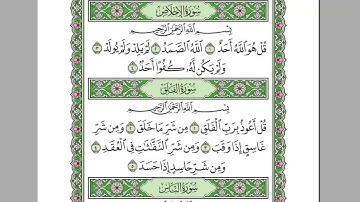 سُورَةُ الإِخْلَاصِ
بِسْمِ ٱللَّهِ ٱلرَّحْمَٰنِ ٱلرَّحِيمِ
قُلْ هُوَ ٱللَّهُ أَحَدٌ ١ ٱللَّهُ ٱلصَّمَدُ ٢ لَمْ يَلِدْ وَلَمْ يُولَدْ ٣
وَلَمْ يَكُن لَّهُۥ كُفُوًا أَحَدٌۢ ٤
سُورَةُ الفَلَقِ
بِسْمِ ٱللَّهِ ٱلرَّحْمَٰنِ ٱلرَّحِيمِ
قُلْ أَعُوذُ بِرَبِّ ٱلْفَلَقِ ١ مِن شَرِّ مَا خَلَقَ ٢ وَمِن شَرِّ
غَاسِقٍ إِذَا وَقَبَ ٣ وَمِن شَرِّ ٱلنَّفَّٰثَٰتِ فِى ٱلْعُقَدِ ٤
وَمِن شَرِّ حَاسِدٍ إِذَا حَسَدَ ٥
سُورَةُ النَّاسِ